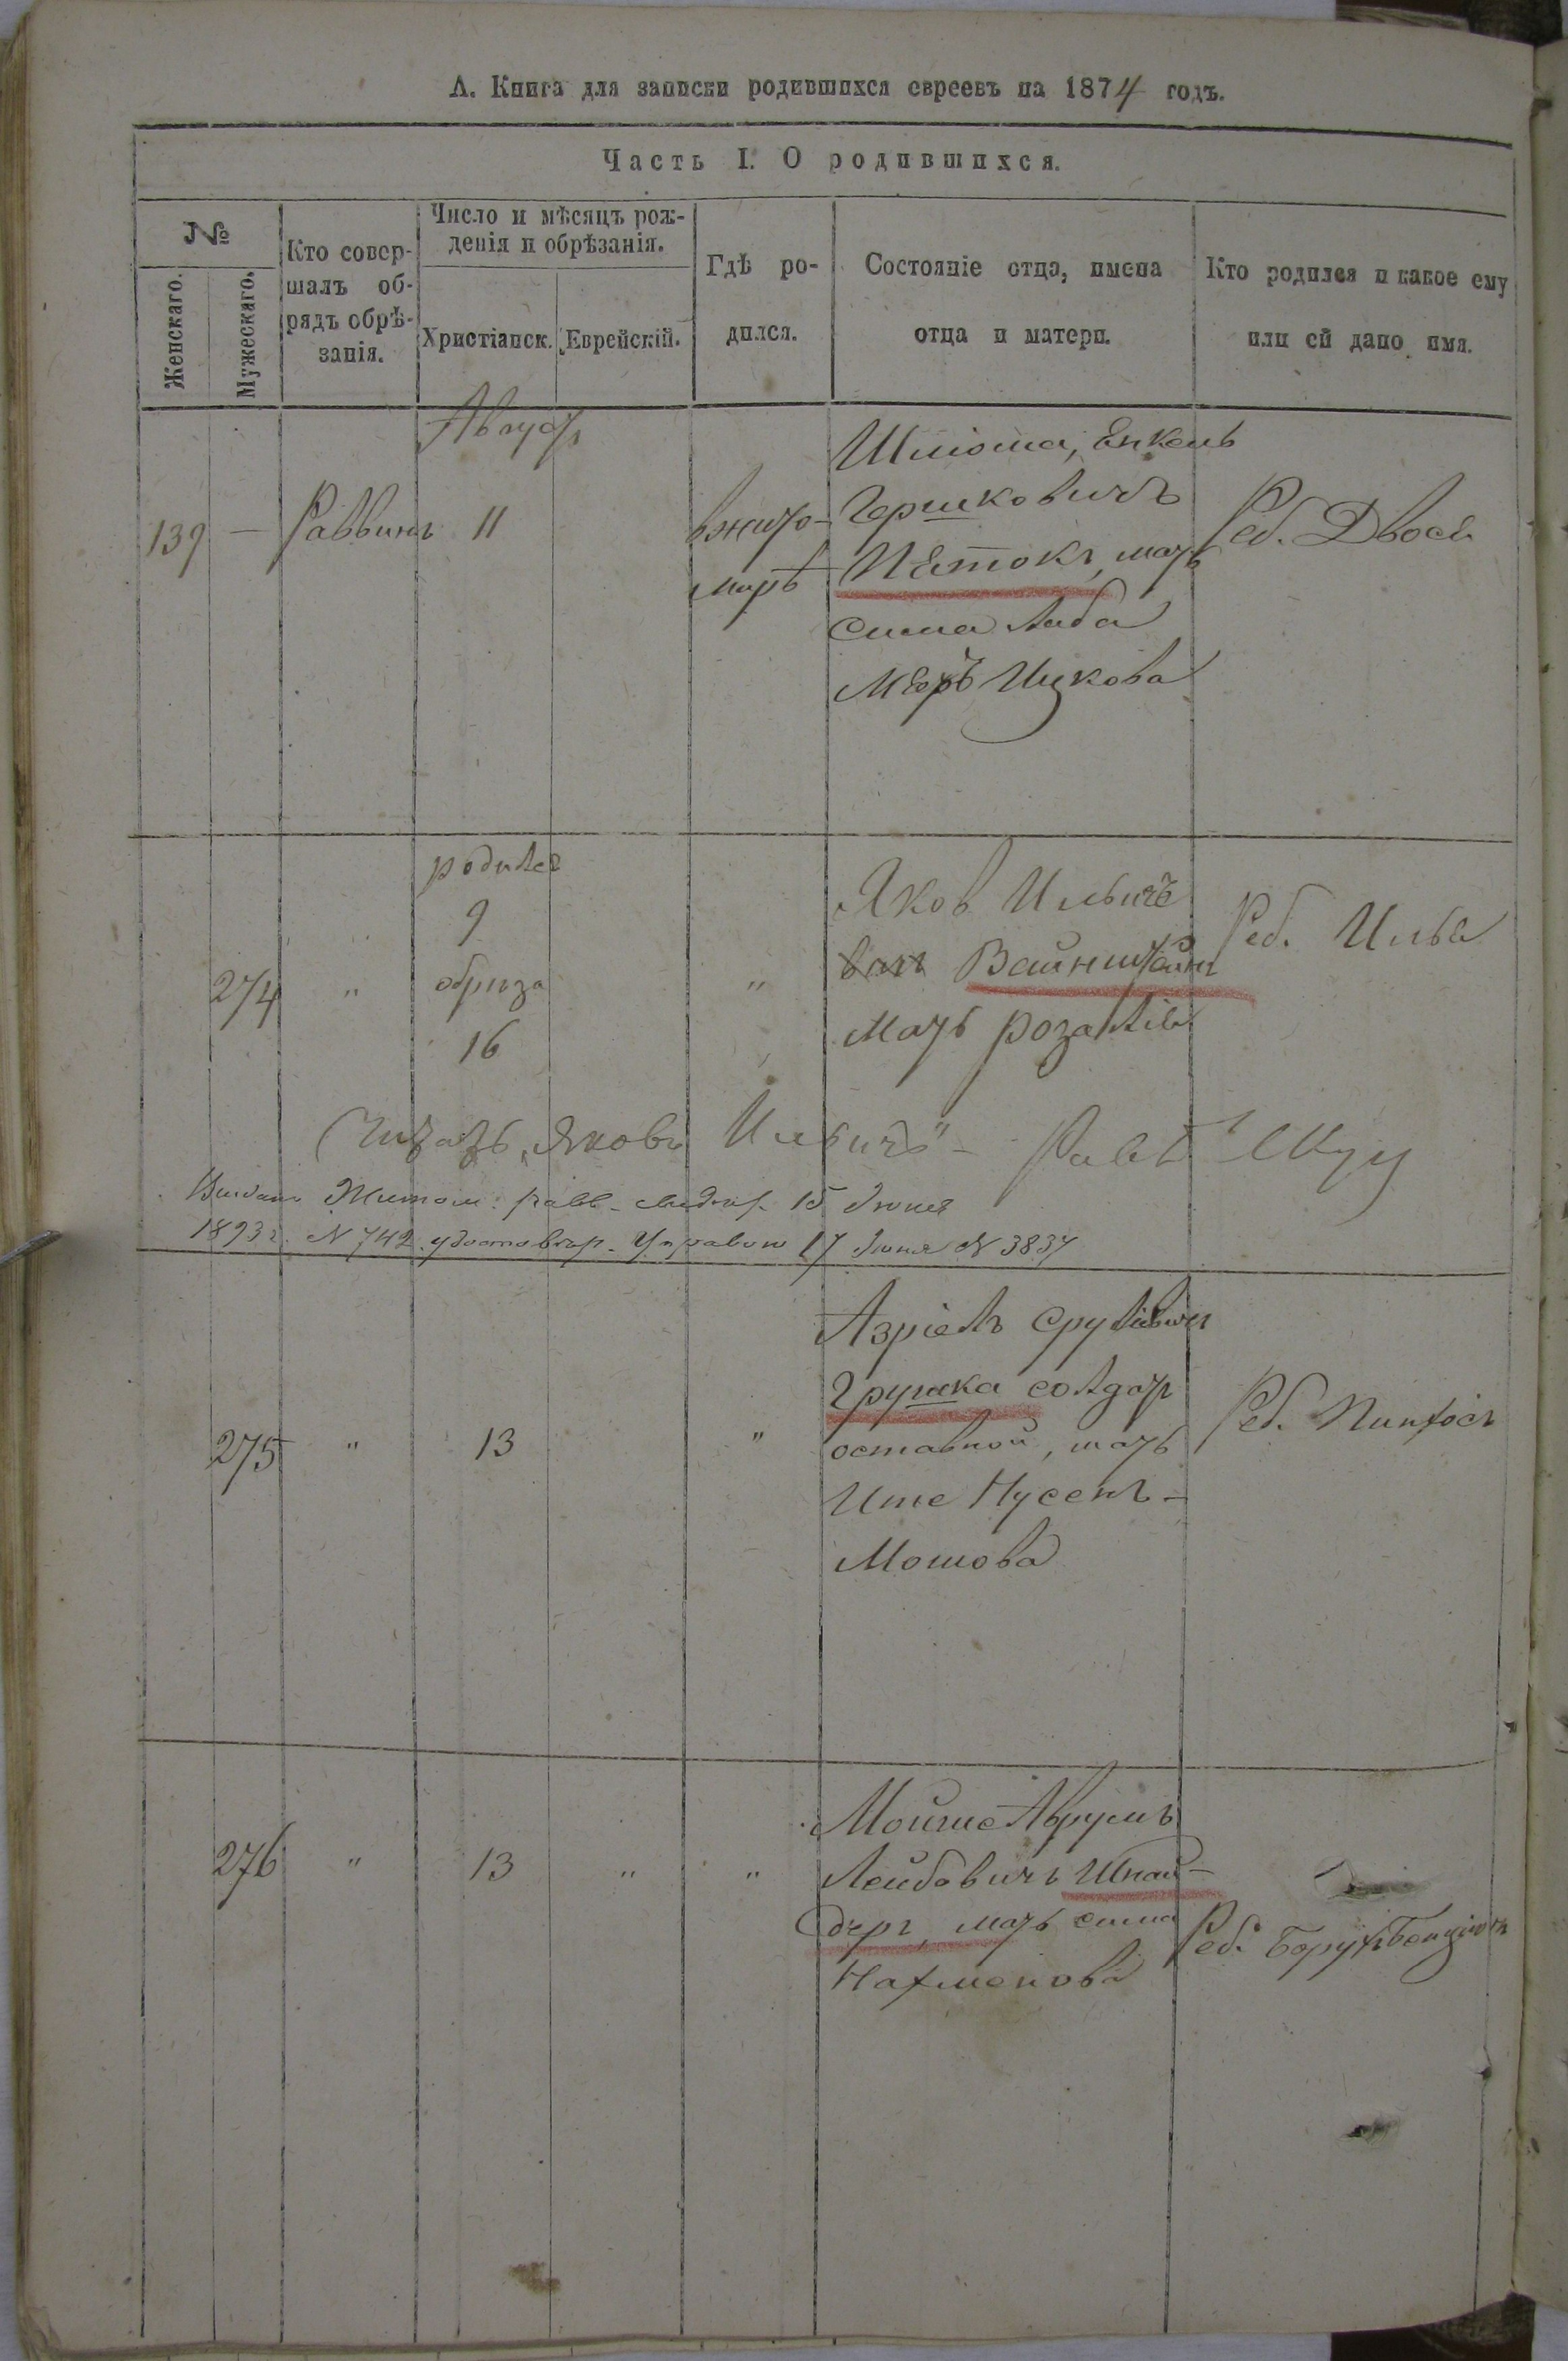 А. Книга для записки родившихся евреевъ на 1874 годъ.
Часть I. О родившихся.
№
Женскаго.
Мужескаго.
Кто совер-
шалъ об-
рядъ обрѣ-
занія.
Число и мѣсяцъ рож-
денія и обрѣзанія.
Христіанск.
Еврейскій.
Гдѣ ро-
дился.
Состояніе отца, имена
отца и матери.
Кто родился и какое ему
или ей дано имя.
Август
139 — Раввинъ 11
вжито-
мирѣ
Шліома, Енкель
Гершковичъ
Пятокъ, мать
Сима Либа
Меръ Ицкова
Реб. Двося
274 "
родился
9
обрѣза
16
"
Яков Ильичъ
Вайнштейнъ
Мать Розалія
Реб. Илья
Читать „Яковъ Ильичъ" –
Выдана Житом: равв. 15 Іюня
1893 г. N 742 удостовѣр. Управою 17 Іюня N 3837
275 " 13 "
Азріель Срулевичъ
Грушка солдат
оставной, мать
Ите Нусенъ –
Мошова
Реб. Пинхосъ
276 " 13 " "
Мойше Аврумъ
Лейбовичъ Шнай-
деръ, мать Сима
Нахменова
Реб. Борухъ Бенціонъ